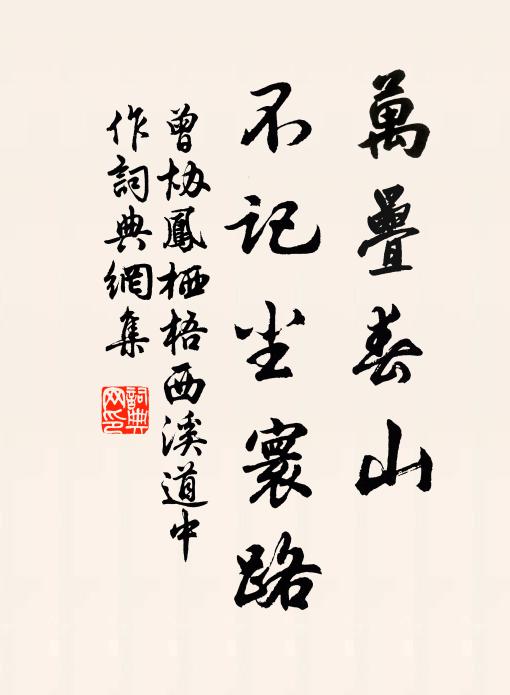 萬疊春山
不記尘寰路
曾協鳳栖梧西溪道中
作詞典網集
詞典網印